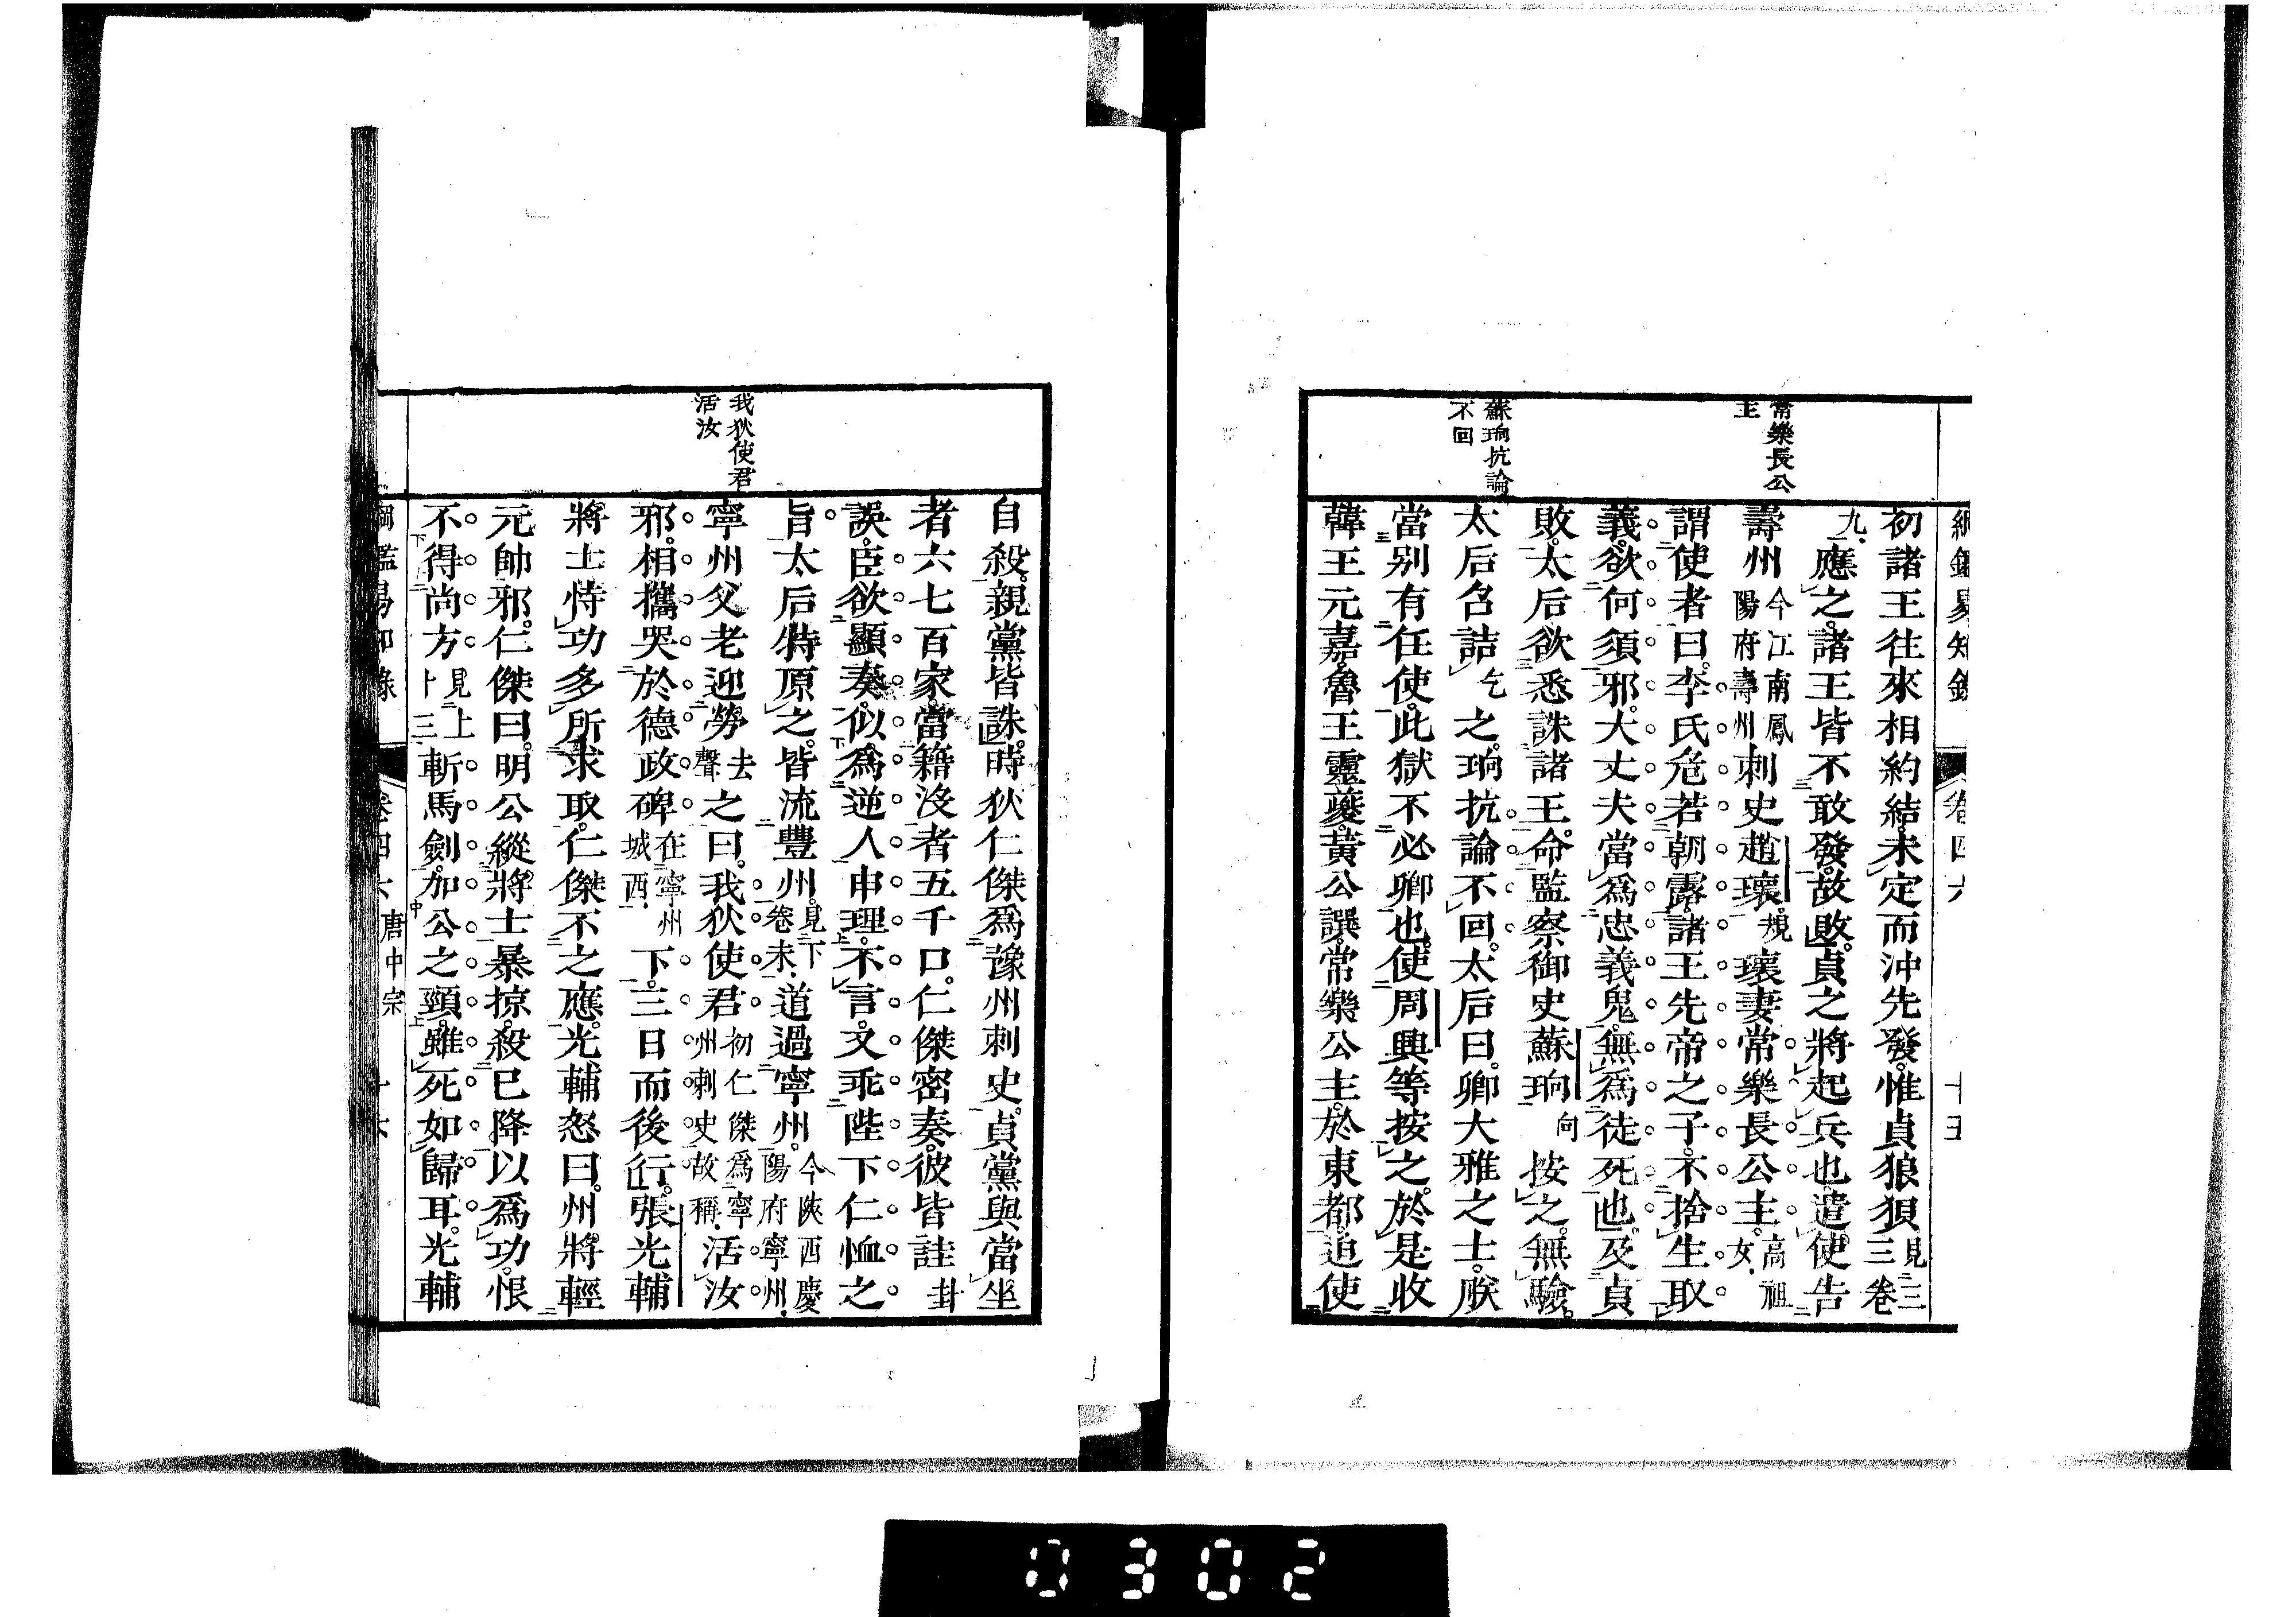 綱鑑易知錄 卷四六 十五
常樂長公
主
蘇珦抗論
不回
初諸王往來相約結未定而沖先發惟貞狼狽見三三卷
九應之諸王皆不敢發故敗貞之將起兵也遣使告
壽州今江南鳳陽府壽州刺史趙瓌規瓌妻常樂長公主高祖女
謂使者曰李氏危若朝露諸王先帝之子不捨生取
義欲何須邪大丈夫當爲忠義鬼無爲徒死也及貞
敗太后欲悉誅諸王命監察御史蘇珦向按之無驗
太后召詰乞之珦抗論不回太后曰卿大雅之士朕
當別有任使此獄不必卿也使周興等按之於是收
韓王元嘉魯王靈夔黃公譔常樂公主於東都迫使
我狄使君
活汝
自殺親黨皆誅時狄仁傑爲豫州刺史貞黨與當坐
者六七百家當籍沒者五千口仁傑密奏彼皆詿卦
誤臣欲顯奏似爲逆人申理不言又乖陛下仁恤之
旨太后特原之皆流豐州見下卷末道過寧州今陝西慶陽府寧州
寧州父老迎勞去聲之曰我狄使君初仁傑爲寧州刺史故稱活汝
邪相攜哭於德政碑在寧州城西下三日而後行張光輔
將士恃功多所求取仁傑不之應光輔怒曰州將輕
元帥邪仁傑曰明公縱將士暴掠殺已降以爲功恨
不得尚方見上十三斬馬劍加公之頸雖死如歸耳光輔
綱鑑易知錄 卷四六 唐中宗 十六
0302